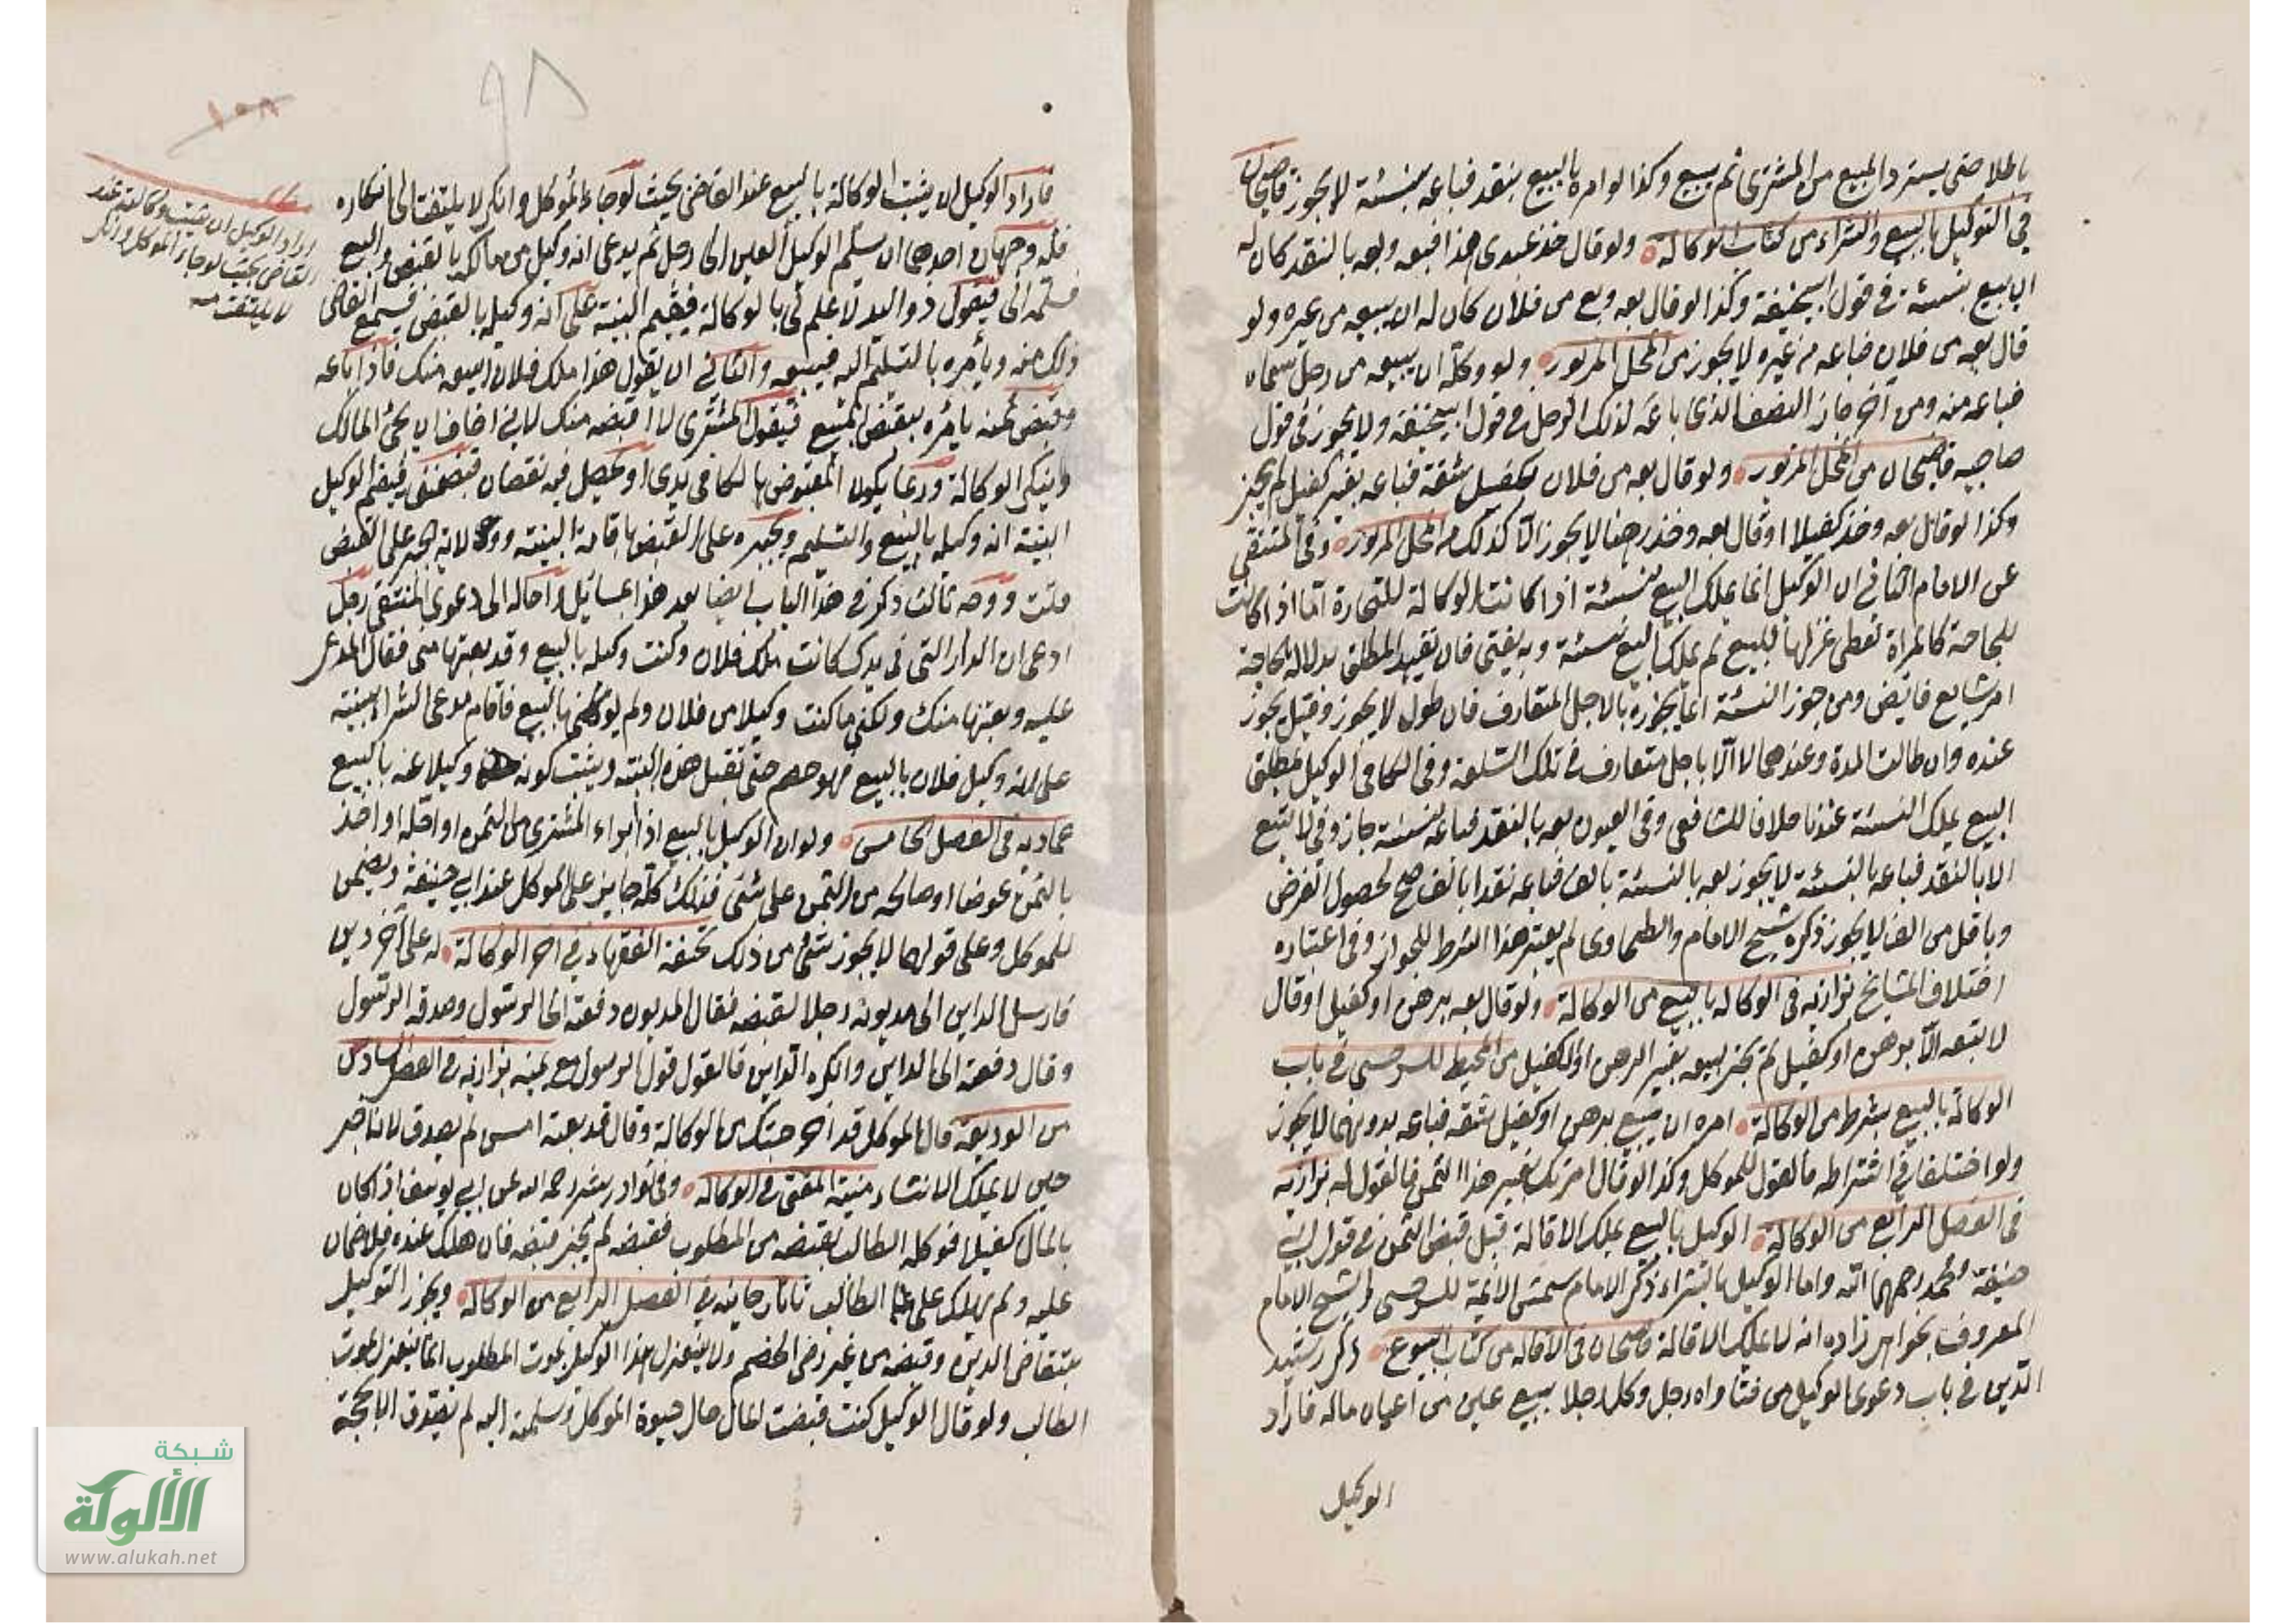 باطلا حتى يسترد المبيع من المشترى ثم يبيع وكذا لو امره بالبيع بنقد فباعه بنسئة لا يجوز قاضيخان
في التوكيل بالبيع والشراء من كتاب الوكالة ولو قال خذ عبدى هذا فبعه وبعه بالنقد كان له
ان يبيع بنسئة في قول ابيحنيفة وكذا لو قال بعه وبع من فلان كان له ان يبيعه من غيره ولو
قال بعه من فلان فباعه من غيره لا يجوز من المحل المزبور ولو وكله ان يبيعه من رجل سماه
فباعه منه ومن آخر جاز النصف الذى باعه لذلك الرجل في قول ابيحنيفة ولا يجوز في قول
صاحبيه قاضيخان من المحل المزبور ولو قال بعه من فلان بكفيل ثقة فباعه بغير كفيل لم يجز
وكذا لو قال بعه وخذ كفيلا او قال بعه وخذ رهنا لا يجوز الا كذلك من المحل المزبور وفي المنتقى
عن الامام الثاني ان الوكيل انما يملك البيع بنسئة اذا كانت الوكالة للتجارة اما اذا كانت
للحاجة كالمراة تعطى غزلها للبيع لم يملك البيع بنسئة وبه يفتى فان تقييد المطلق بدلالة الحاجة
امر شايع فايض ومن جوز النسئة انما يجوزه بالاجل المتعارف فان طول لا يجوز وقيل يجوز
عنده وان طالت المدة وعندهما لا الا باجل متعارف في تلك السلعة وفي الكافي الوكيل بمطلق
البيع يملك النسئة عندنا خلافا للشافعي وفي العيون بعه بالنقد فباعه بنسئة جاز وفي لا تبع
الا بالنقد فباعه بالنسئة لا يجوز بعه بالنسئة بالف فباعه نقدا بالف صح لحصول الغرض
وباقل من الف لا يجوز ذكره شيخ الامام والطحاوى لم يعتبر هذا الشرط للجواز وفي اعتباره
اختلاف المشايخ بزازيه في الوكالة بالبيع من الوكالة ولو قال بعه برهن او كفيل او قال
لا تبعه الا برهن او كفيل لم يجز بيعه بغير الرهن او الكفيل من المحيط للسرخسى في باب
الوكالة بالبيع بشرط من الوكالة امره ان يبيع برهن او كفيل ثقة فباعه بدونهما لا يجوز
ولو اختلفا في اشتراطه فالقول للموكل وكذا لو قال امرتك بغير هذا الثمن فالقول له بزازيه
في الفصل الرابع من الوكالة الوكيل بالبيع يملك الاقالة قبل قبض الثمن في قول ابي
حنيفة ومحمد رحمهما الله واما الوكيل بالشراء ذكر الامام شمس الائمة للسرخسى والشيخ الامام
المعروف بخواهر زاده انه لا يملك الاقالة قاضيخان في الاقالة من كتاب البيوع ذكر رشيد
الدين في باب دعوى الوكيل من فتاواه رجل وكل رجلا ببيع عين من اعيان ماله فاراد
الوكيل
فاراد الوكيل ان يثبت الوكالة بالبيع عند القاضى بحيث لو جاء الموكل وانكر لا يلتفت الى انكاره
فله وجهان احدهما ان يسلم الوكيل العين الى رجل ثم يدعى انه وكيل من مالكه بالقبض والبيع
فسلمه الى فيقول ذو اليد لا علم لى بالوكالة فيقيم البينة على انه وكيله بالقبض فيسمع القاضى
ذلك منه ويأمره بالتسليم اليه فيبيعه والثاني ان يقول هذا ملك فلان ابيعه منك فاذا باعه
وقبض ثمنه يأمره بقبض المبيع فيقول المشترى لا اقبضه منك لاني اخاف ان يجئ المالك
وينكر الوكالة وربما يكون المقبوض هالكا في يدى او يحصل فيه نقصان فيضمننى فيقيم الوكيل
البينة انه وكيله بالبيع والتسليم ويجبره على القبض باقامة البينة لانه يجبر على القبض
قلت ووجه ثالث ذكر في هذا الباب ايضا بعد هذا بمسائل واحاله الى دعوى المنتقى رجل
ادعى ان الدار التى في يدك كانت ملك فلان وكنت وكيله بالبيع وقد بعتها منى فقال المدعى
عليه وبعتها منك ولكنى ما كنت وكيلا من فلان ولم يوكلنى بالبيع فاقام مدعى الشراء ببينة
على انه وكيل فلان بالبيع فهو خصم حتى تقبل هذه البينة ويثبت كونه وكيلا عنه بالبيع
عماديه في الفصل الخامس ولو ان الوكيل بالبيع اذا ابراء المشترى من الثمن او اقله او اخذ
بالثمن عوضا او صالحه من الثمن على شئ فذلك كله جايز على الموكل عند ابي حنيفة ويضمن
للموكل وعلى قولهما لا يجوز شئ من ذلك تحفة الفقهاء في آخر الوكالة له على آخر دين
فارسل الداين الى مديونه رجلا ليقبضه فقال المديون دفعته الى الرسول وصدقه الرسول
وقال دفعته الى الداين وانكره الداين فالقول قول الرسول مع يمينه بزازيه في الفصل السادس
من الوديعة قال الموكل قد اخرجتك من الوكالة وقال قد بعته امس لم يصدق لانه اخبر
حين لا يملك الانشاء منية المفتى في الوكالة وفي نوادر بشر رحمه الله عن ابي يوسف اذا كان
بالمال كفيلا فوكله الطالب بقبضه من المطلوب فقبضه لم يجز قبضه فان هلك عنده فلا ضمان
عليه ولم يهلك على الطالب تاتارخانيه في الفصل الرابع من الوكالة ويجوز التوكيل
بتقاضى الدين وقبضه من غير رضى الخصم ولا ينعزل هذا الوكيل بموت المطلوب انما ينعزل بموت
الطالب ولو قال الوكيل كنت قبضت المال حال حيوة الموكل وسلمته اليه لم يصدق الا بحجة
اراد الوكيل ان يثبت وكالته عند
القاضى بحيث لو جاء الموكل وانكر
لا يلتفت
٩٨
١٠٨
شبكة
الألوكة
www.alukah.net